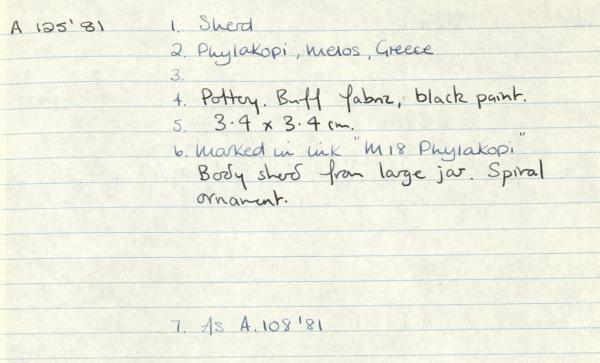 A 125'81
1. Sherd
2. Phylakopi, Melos, Greece
3.
4. Pottery. Buff fabric, black paint.
5. 3.4 x 3.4 cm.
6. Marked in ink "M18 Phylakopi"
Body sherd from large jar. Spiral
ornament.
7. As A.108'81